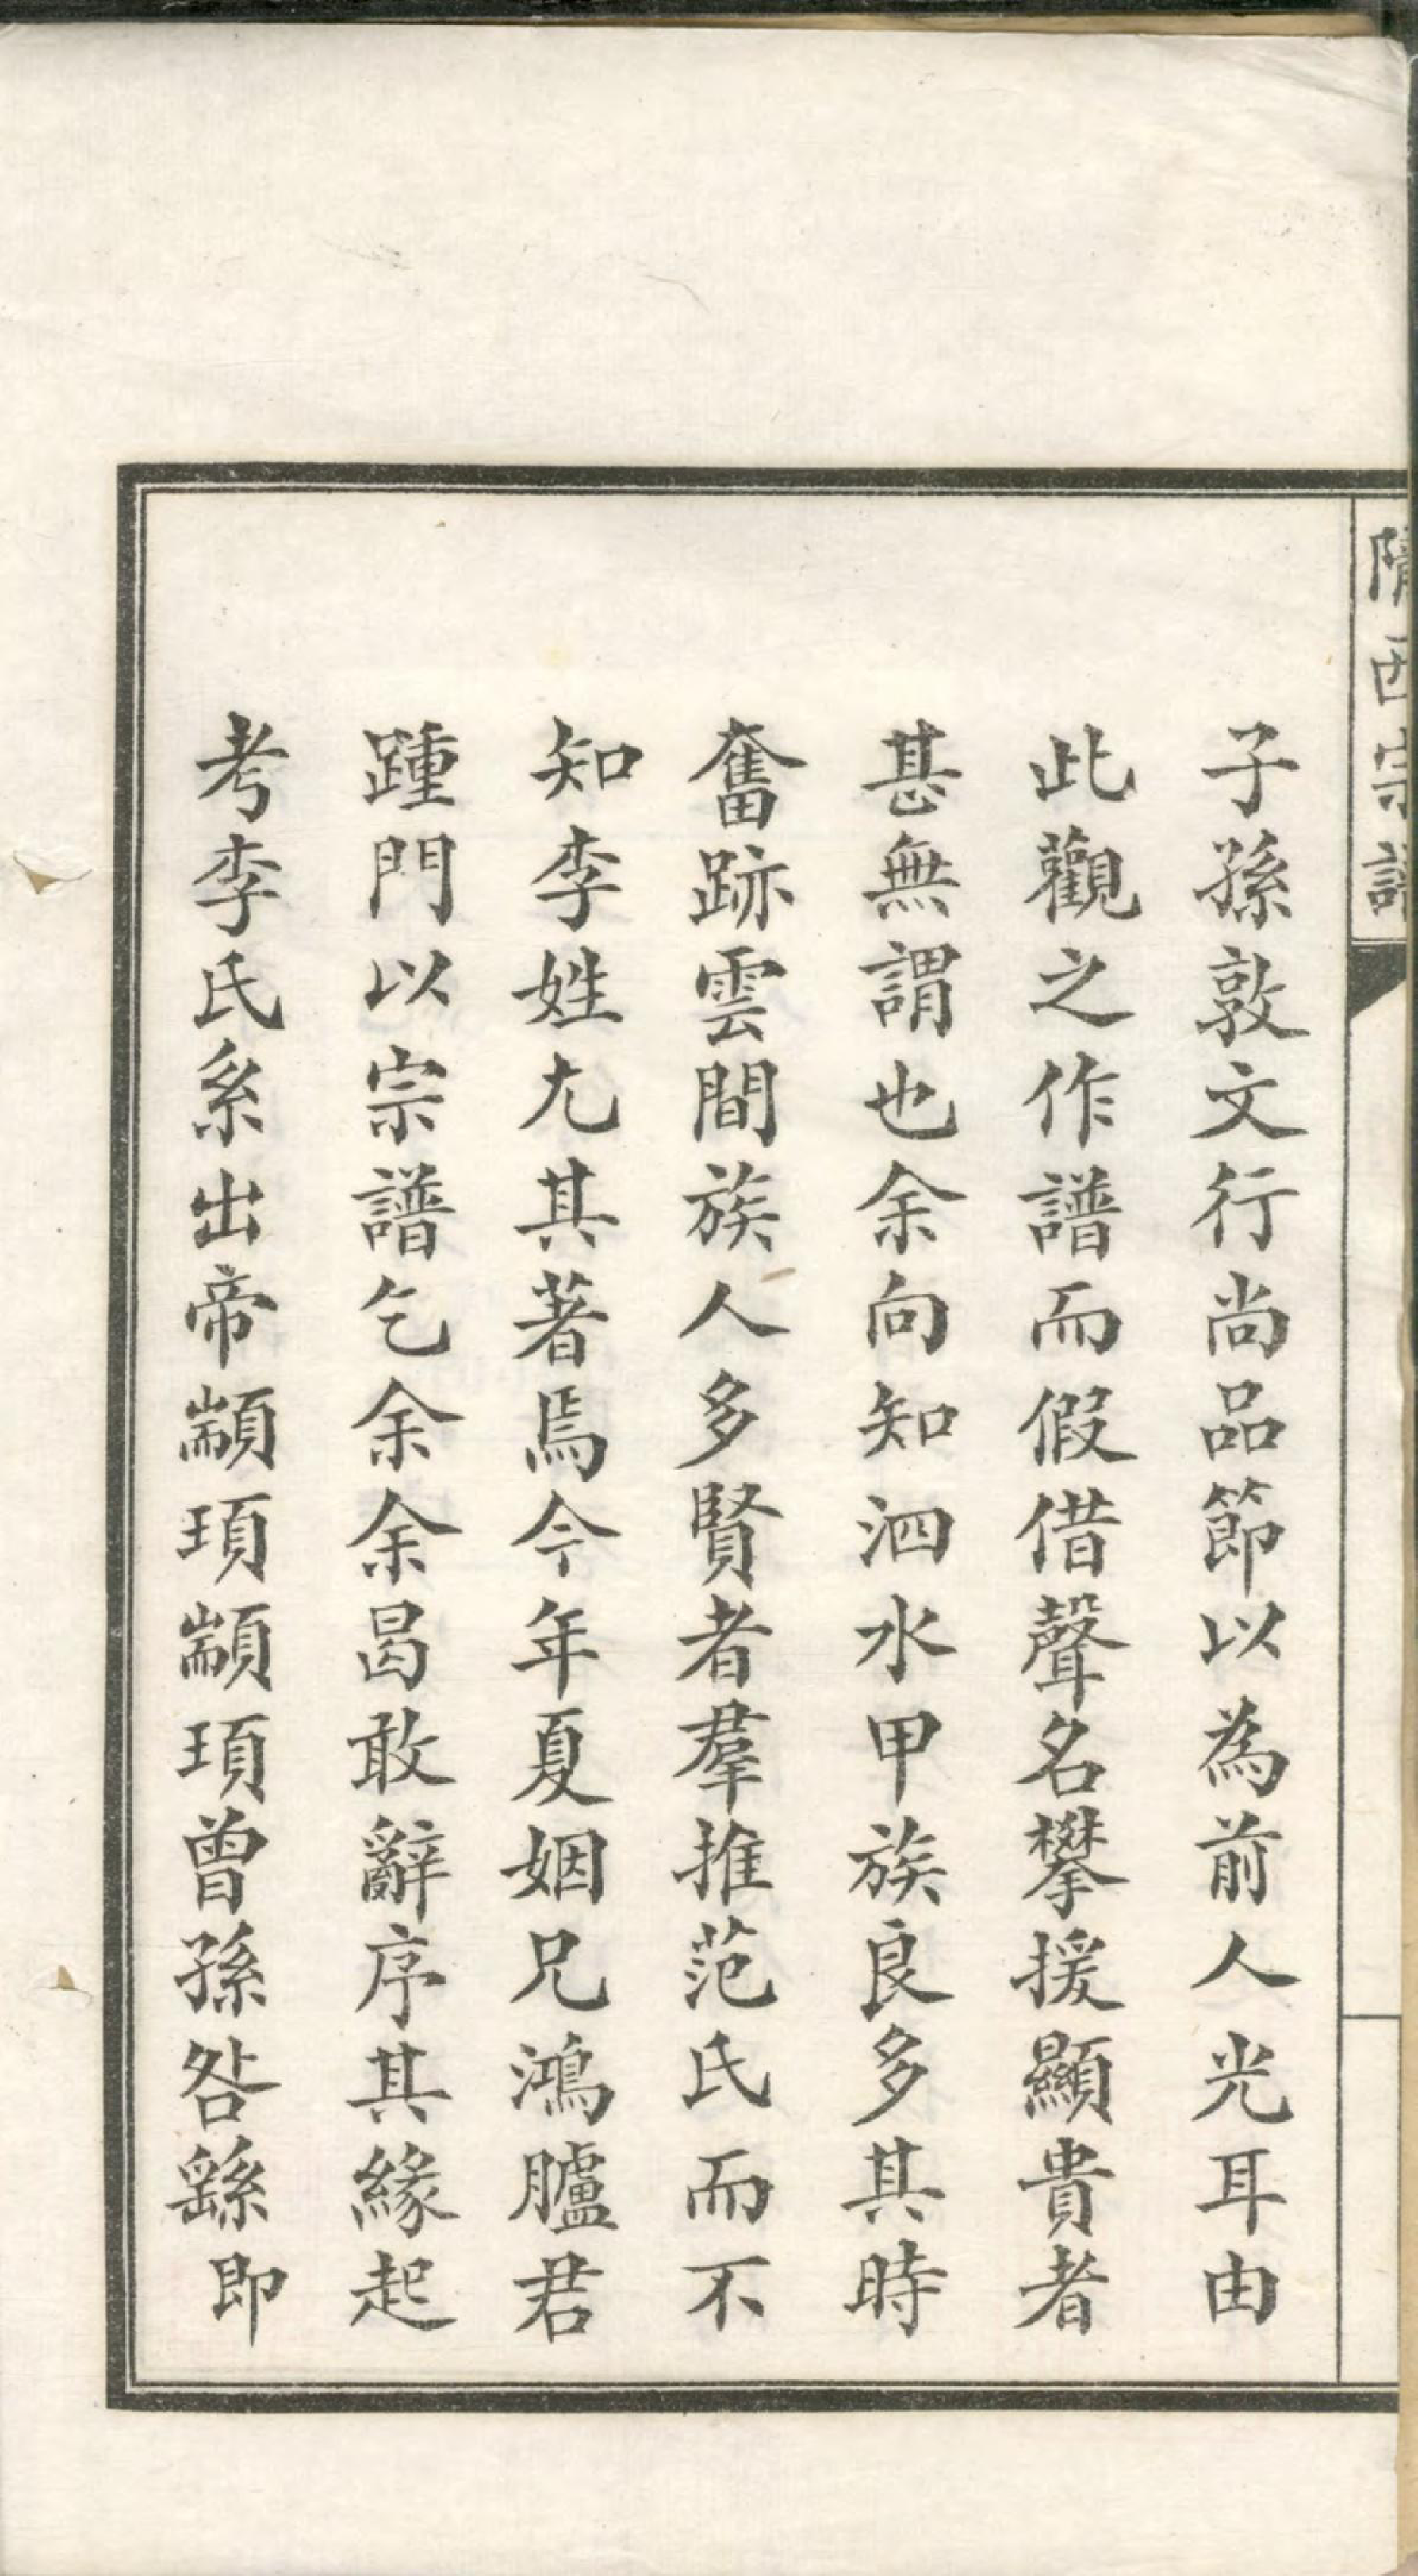 隴西宗譜
子孫敦文行尚品節以為前人光耳由
此觀之作譜而假借聲名攀援顯貴者
甚無謂也余向知泗水甲族良多其時
奮跡雲間族人多賢者羣推范氏而不
知李姓尢其著焉今年夏姻兄鴻臚君
踵門以宗譜乞余余曷敢辭序其緣起
考李氏系出帝顓頊顓頊曾孫咎繇即